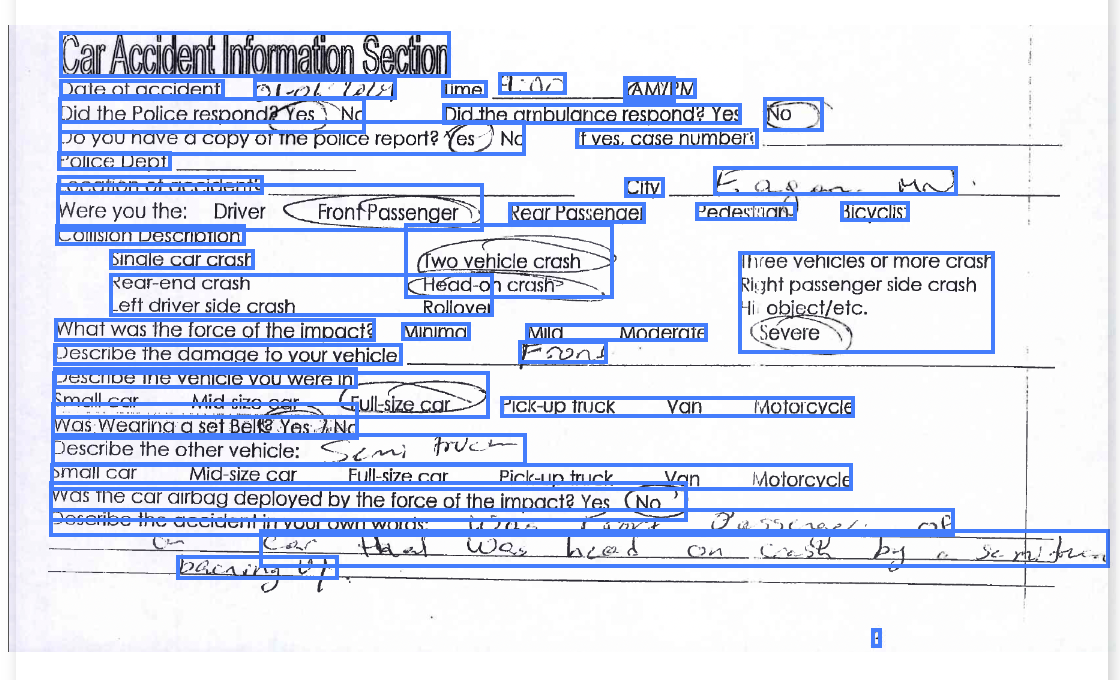 Car Accident Information Section
Date of accident 01-06-2019 Time 9:00 AM/PM
Did the Police respond? Yes No Did the ambulance respond? Yes No
Do you have a copy of the police report? Yes No If yes, case number?
Police Dept
Location of accident? City Eagan MN.
Were you the: Driver Front Passenger Rear Passenger Pedestrian Bicyclist
Collision Description
Single car crash Two vehicle crash Three vehicles or more crash
Rear-end crash Head-on crash Right passenger side crash
Left driver side crash Rollover Hit object/etc.
What was the force of the impact? Minimal Mild Moderate Severe
Describe the damage to your vehicle Front
Describe the vehicle you were in
Small car Mid-size car Full-size car Pick-up truck Van Motorcycle
Was Wearing a set Belt? Yes / No
Describe the other vehicle: Semi truck
Small car Mid-size car Full-size car Pick-up truck Van Motorcycle
Was the car airbag deployed by the force of the impact? Yes No
Describe the accident in your own words: Was Front Passenger of
a car that was head on crash by a semi truck
backing up.